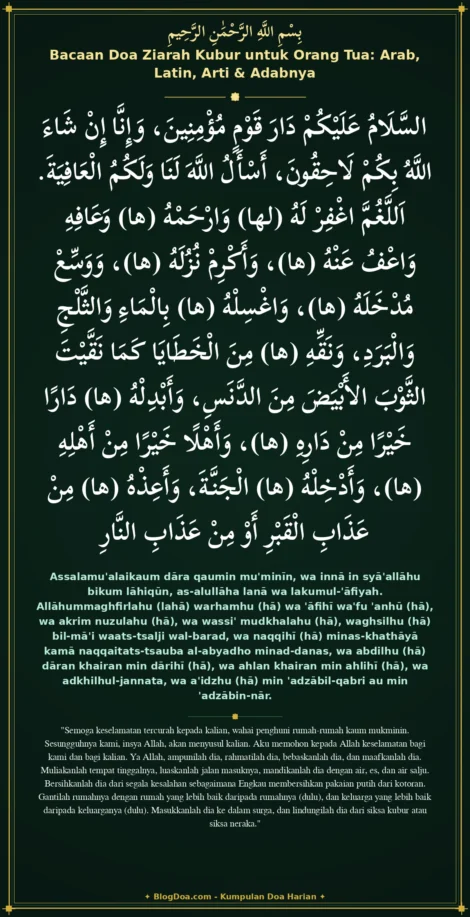 بِسْمِ اللَّهِ الرَّحْمَٰنِ الرَّحِيمِ
Bacaan Doa Ziarah Kubur untuk Orang Tua: Arab,
Latin, Arti & Adabnya
السَّلَامُ عَلَيْكُمْ دَارَ قَوْمٍ مُؤْمِنِينَ، وَإِنَّا إِنْ شَاءَ
اللَّهُ بِكُمْ لَاحِقُونَ، أَسْأَلُ اللَّهَ لَنَا وَلَكُمُ الْعَافِيَةَ.
اَللَّغُمَّ اغْفِرْ لَهُ (لها) وَارْحَمْهُ (ها) وَعَافِهِ
وَاعْفُ عَنْهُ (ها)، وَأَكْرِمْ نُزُلَهُ (ها)، وَوَسِّعْ
مُدْخَلَهُ (ها)، وَاغْسِلْهُ (ها) بِالْمَاءِ وَالثَّلْجِ
وَالْبَرَدِ، وَنَقِّهِ (ها) مِنَ الْخَطَايَا كَمَا نَقَّيْتَ
الثَّوْبَ الأَبْيَضَ مِنَ الدَّنَسِ، وَأَبْدِلْهُ (ها) دَارًا
خَيْرًا مِنْ دَارِهِ (ها)، وَأَهْلًا خَيْرًا مِنْ أَهْلِهِ
(ها)، وَأَدْخِلْهُ (ها) الْجَنَّةَ، وَأَعِذْهُ (ها) مِنْ
عَذَابِ الْقَبْرِ أَوْ مِنْ عَذَابِ النَّارِ
Assalamu'alaikaum dāra qaumin mu'minīn, wa innā in syā'allāhu
bikum lāhiqūn, as-alullāha lanā wa lakumul-'āfiyah.
Allāhummaghfirlahu (lahā) warhamhu (hā) wa 'āfihī wa'fu 'anhū (hā),
wa akrim nuzulahu (hā), wa wassi' mudkhalahu (hā), waghsilhu (hā)
bil-mā'i waats-tsalji wal-barad, wa naqqihī (hā) minas-khathāyā
kamā naqqaitats-tsauba al-abyadho minad-danas, wa abdilhu (hā)
dāran khairan min dārihī (hā), wa ahlan khairan min ahlihī (hā), wa
adkhilhul-jannata, wa a'idzhu (hā) min 'adzābil-qabri au min
'adzābin-nār.
"Semoga keselamatan tercurah kepada kalian, wahai penghuni rumah-rumah kaum mukminin.
Sesungguhnya kami, insya Allah, akan menyusul kalian. Aku memohon kepada Allah keselamatan bagi
kami dan bagi kalian. Ya Allah, ampunilah dia, rahmatilah dia, bebaskanlah dia, dan maafkanlah dia.
Muliakanlah tempat tinggalnya, luaskanlah jalan masuknya, mandikanlah dia dengan air, es, dan air salju.
Bersihkanlah dia dari segala kesalahan sebagaimana Engkau membersihkan pakaian putih dari kotoran.
Gantilah rumahnya dengan rumah yang lebih baik daripada rumahnya (dulu), dan keluarga yang lebih baik
daripada keluarganya (dulu). Masukkanlah dia ke dalam surga, dan lindungilah dia dari siksa kubur atau
siksa neraka."
BlogDoa.com - Kumpulan Doa Harian